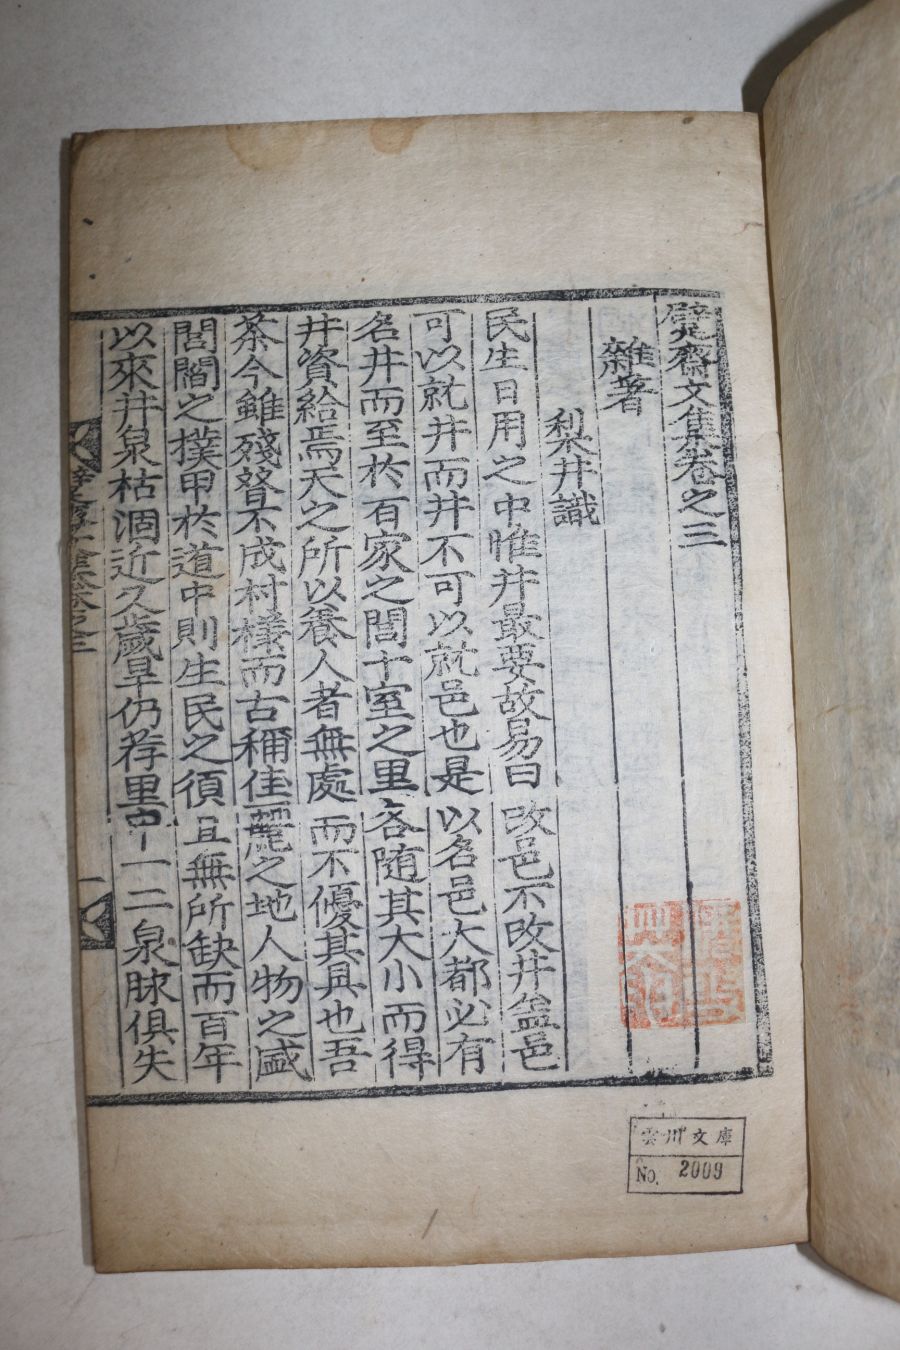 齋文集卷之三
雜著
梨井識
民生日用之中惟井最要故易曰改邑不改井盖邑
可以就井而井不可以就邑也是以名邑大都必有
名井而至於百家之閭十室之里各随其大小而得
井資給焉天之所以養人者無處而不優其具也吾
茶今雖殘瞀不成村㨾而古稱佳麗之地人物之盛
閭閻之撲甲於道中則生民之須且無所缺而百年
以來井泉枯涸近久歲旱仍荐里中一二泉脉俱失
雲川文庫
No. 2009